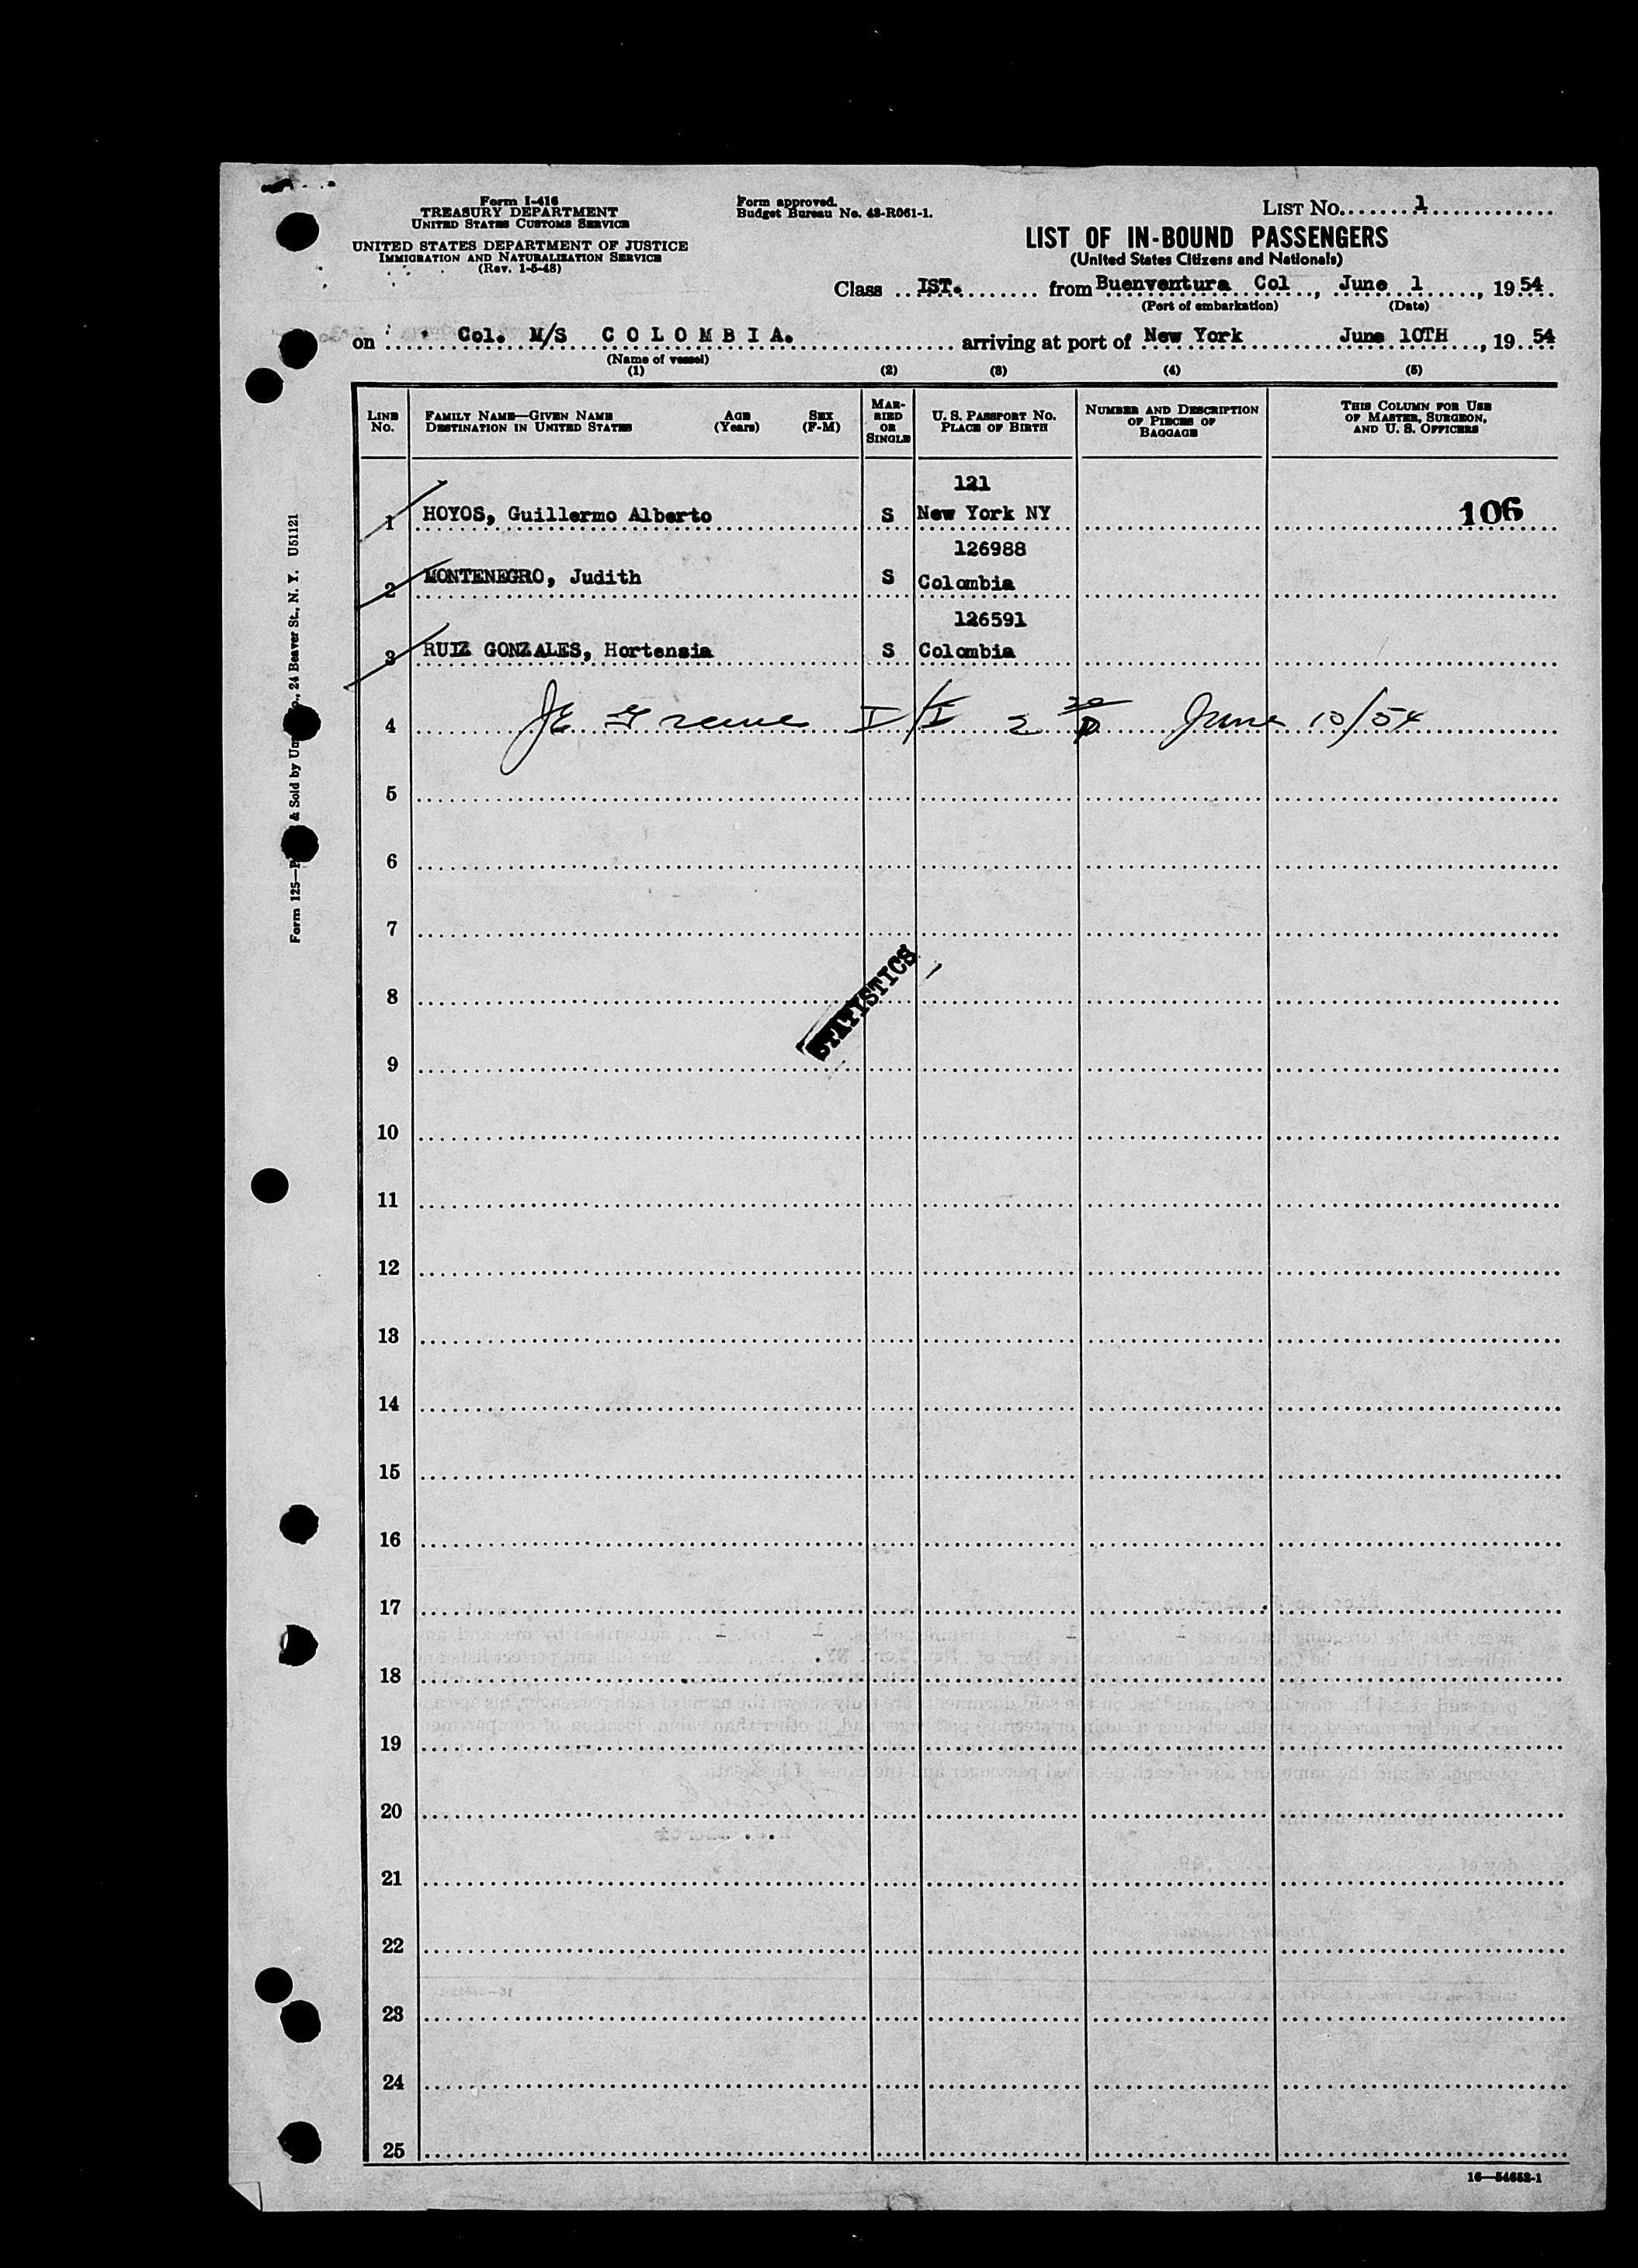 Form I-416
TREASURY DEPARTMENT
UNITED STATES CUSTOMS SERVICE
UNITED STATES DEPARTMENT OF JUSTICE
IMMIGRATION AND NATURALIZATION SERVICE
(Rev. 1-5-48)
Form approved.
Budget Bureau No. 43-R061-1.
LIST No. 1
LIST OF IN-BOUND PASSENGERS
(United States Citizens and Nationals)
Class IST. from Buenventura Col, June 1, 1954.
(Port of embarkation) (Date)
on Col. M/S COLOMBIA. arriving at port of New York June 10TH, 1954
(Name of vessel)
(1) (2) (3) (4) (5)
LINE No. FAMILY NAME—GIVEN NAME DESTINATION IN UNITED STATES AGE (Years) SEX (F-M) MARRIED OR SINGLE U. S. PASSPORT NO. PLACE OF BIRTH NUMBER AND DESCRIPTION OF PIECES OF BAGGAGE THIS COLUMN FOR USE OF MASTER, SURGEON, AND U. S. OFFICERS
121
1 HOYOS, Guillermo Alberto S New York NY 106
126988
2 MONTENEGRO, Judith S Colombia
126591
3 RUIZ GONZALES, Hortensia S Colombia
4 June 10/54
5
6
7
STATISTICS
8
9
10
11
12
13
14
15
16
17
18
19
20
21
22
23
24
25
16—54652-1
Form 125— & Sold by 24 Beaver St., N. Y. U51121